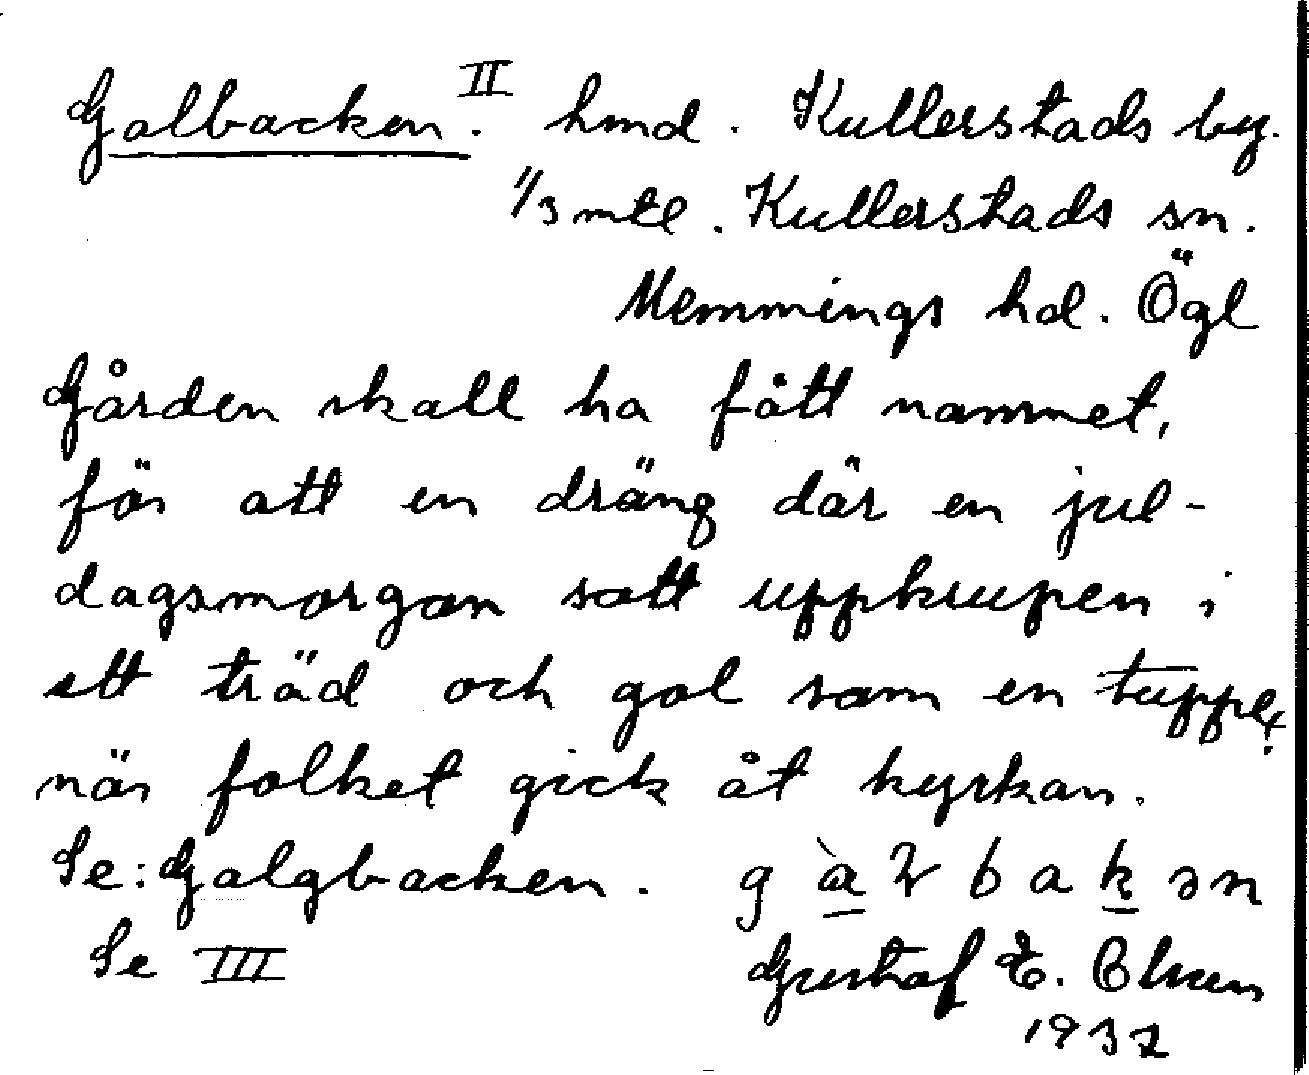 Galbacken. II hmd. Kullerstads by.
1/3 mtl. Kullerstads sn.
Memmings hd. Ögl
Gården skall ha fått namnet,
för att en dräng där en jul-
dagsmorgon satt uppkrupen i
ett träd och gol som en tupp,
när folket gick åt kyrkan.
Se: Galgbacken. g à̱ ɽ b a ḵ ə n
Se III Gustaf E.
1937